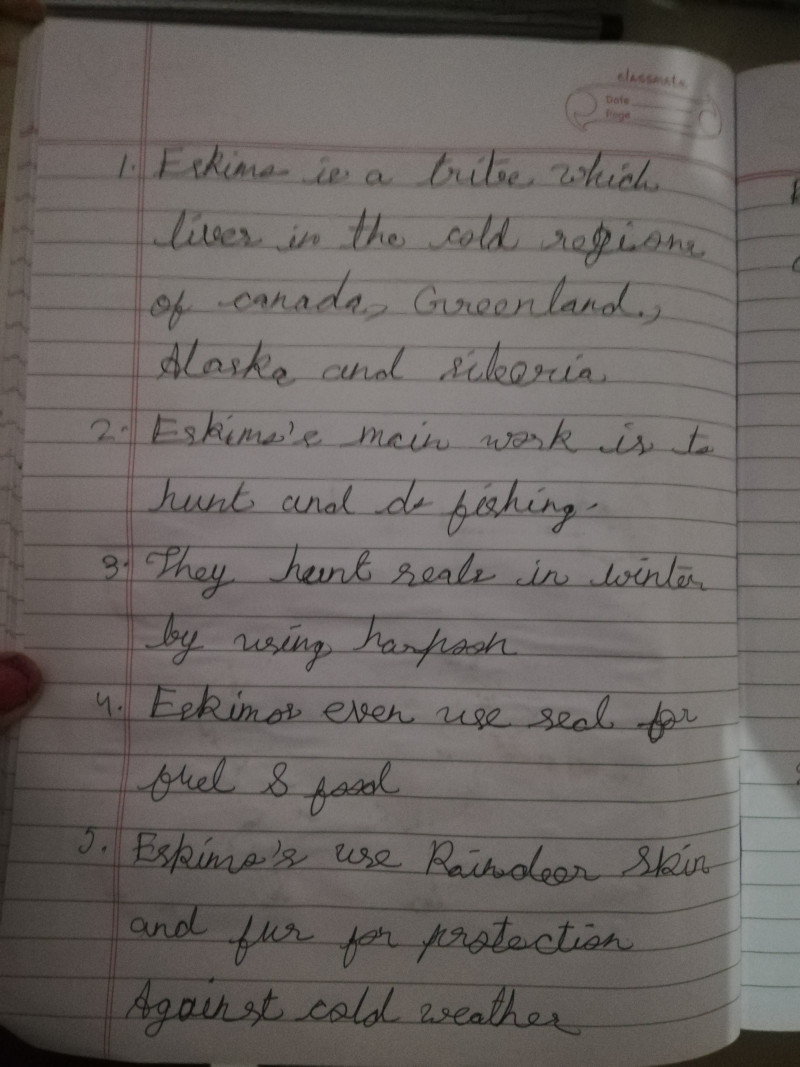 classmate
Date
Page
1. Eskimo is a tribe which
lives in the cold regions
of canada, Greenland,
Alaska and siberia
2. Eskimo's main work is to
hunt and do fishing.
3. They hunt seals in winter
by using harpoon
4. Eskimos even use seal for
fuel & food
5. Eskimo's use Raindeer skin
and fur for protection
Against cold weather